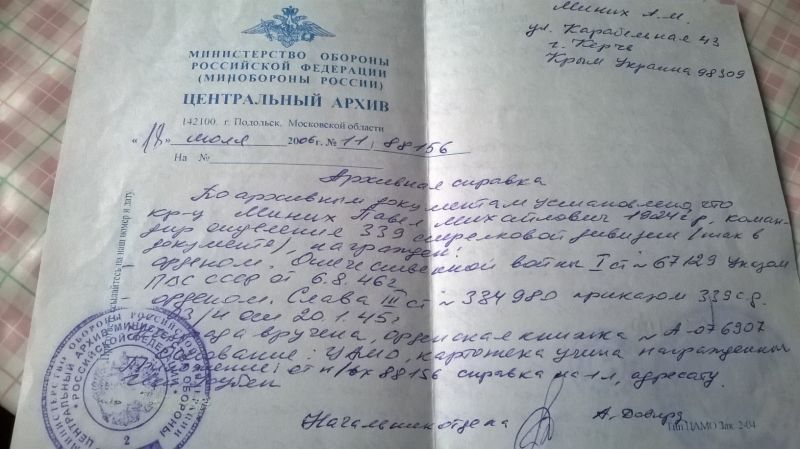 Миних А.М.
ул. Карабельная 43
г. Керчь
Крым Украина 98309
МИНИСТЕРСТВО ОБОРОНЫ
РОССИЙСКОЙ ФЕДЕРАЦИИ
(МИНОБОРОНЫ РОССИИ)
ЦЕНТРАЛЬНЫЙ АРХИВ
142100. г. Подольск, Московской области
«18» июля 2006г. № 11/88156
На №
Архивная справка
По архивным документам установлено, что
кр-ц Миних Павел Михайлович 1924 г.р. коман-
дир отделения 339 стрелковой дивизии /так в
документе/, награжден:
- орденом. Отечественной войны I ст № 67129 Указом
ПВС СССР от 6.8.46г
- орденом. Слава III ст № 384980 приказом 339 с.д.
03/н от 20.1.45г
вручена, орденская книжка № А-076907
ЦАМО, картотека учета награжденных
88156 справка на 1л, адресату.
Начальник отдела
ссылайтесь на наш номер и дату
МИНИСТЕРСТВО ОБОРОНЫ РОССИЙСКОЙ
ЦЕНТРАЛЬНЫЙ АРХИВ
2
Тип ЦАМО Зак. 2-04